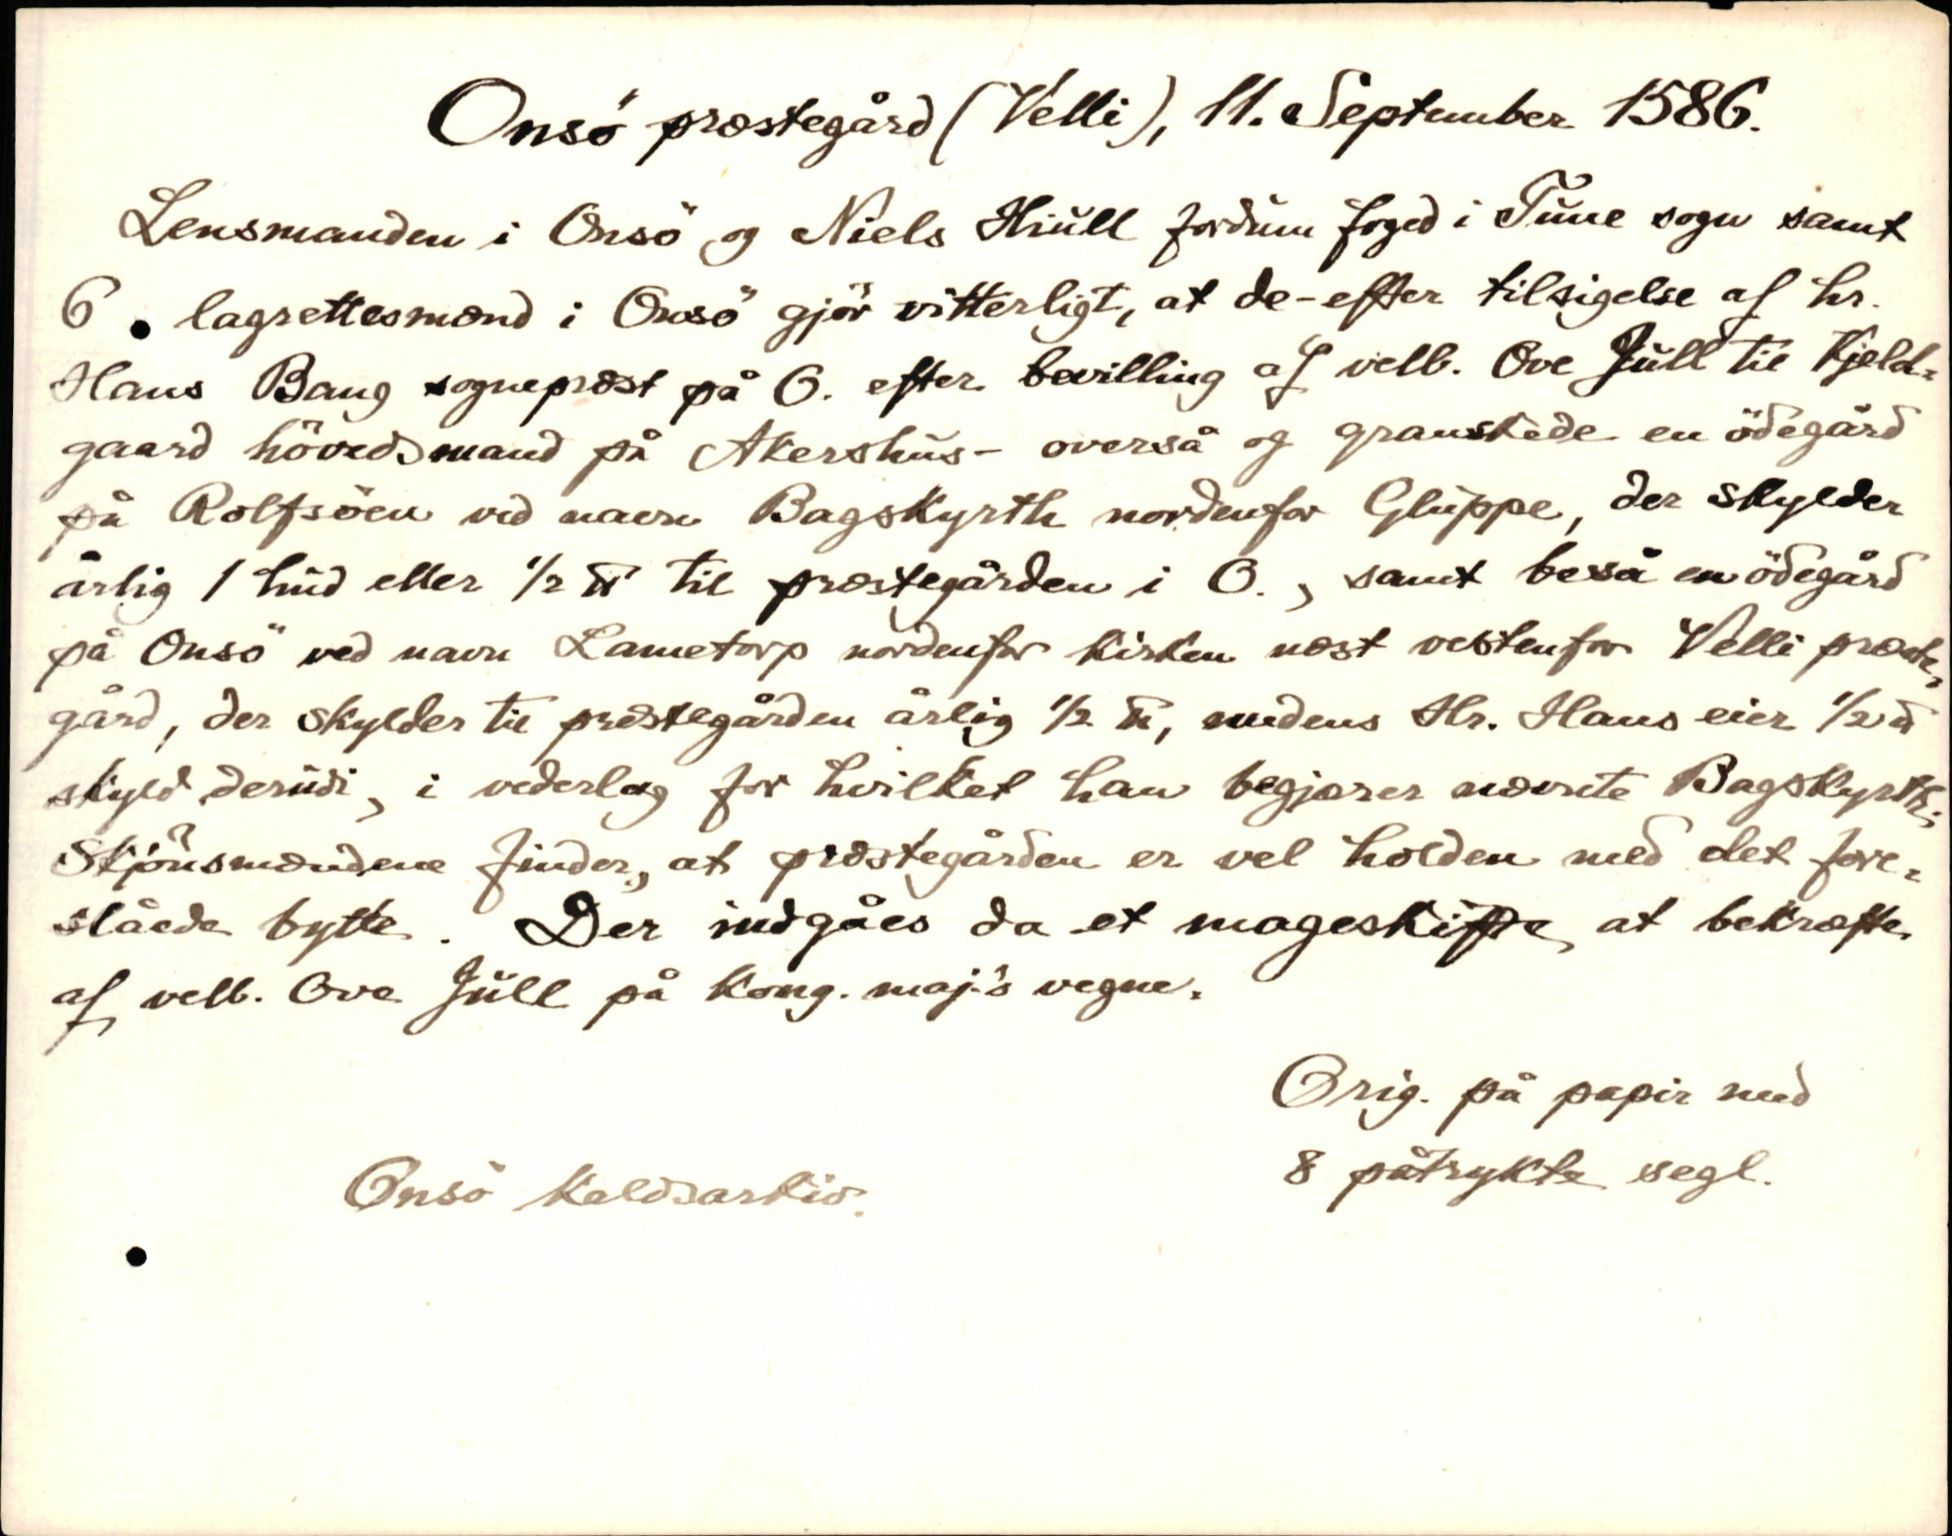 Onsö præstegård (Velli), 11. September 1586.
Lensmanden i Onsö og Niels Hiull fordum foged i Tune sogn samt
6 lagrettesmænd i Onsö gjör vitterligt, at de - efter tilsigelse af hr.
Hans Bang sogneprest på O. efter bevilling af velb. Ove Jull til Kjeld-
gaard hövedsmand på Akershus - overså og granskede en ödegård
på Rolfsöen ved navn Bagskyrth nordenfor Gluppe, der skylder
årlig 1 hud eller 1/2 ℔ til præstegården i O., samt beså en ödegård
på Onsö ved navn Lametorp nordenfor kirken næst vestenfor Velli præste-
gård, der skylder til præstegården årlig 1/2 ℔, medens Hr. Hans eier 1/2 ℔
skyld derudi, i vederlag for hvilket han begjærer nævnte Bagskyrth;
Skjönsmændene finder, at præstegården er vel holden med det fore-
slåede bytte. Der indgåes da et mageskifte at bekræfte
af velb. Ove Jull på kong. maj.'s vegne.
Orig. på papir med
8 påtrykte segl.
Onsö kaldsarkiv.